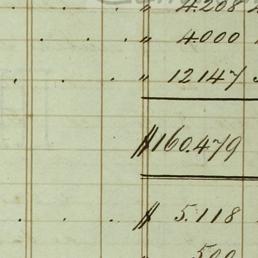 " 4.208
" 4.000
" 12.147
$160.479
$ 5.118
" 500